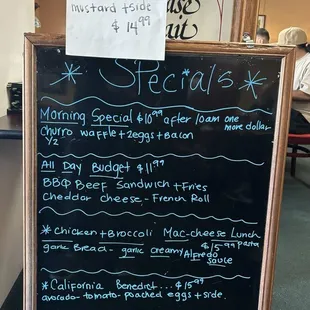 mustard + side
$14.99
ait
* Specials *
Morning Special $10.99 after 10am one
more dollar
Churro waffle + 2eggs + Bacon
1/2
All Day Budget $11.99
BBQ Beef Sandwich + Fries
Cheddar cheese - French Roll
* Chicken + Broccoli Mac-cheese Lunch
$15.99 pasta
garlic Bread - garlic creamy Alfredo
sauce
* California Benedict... $15.99
avocado - tomato - poached eggs + side.